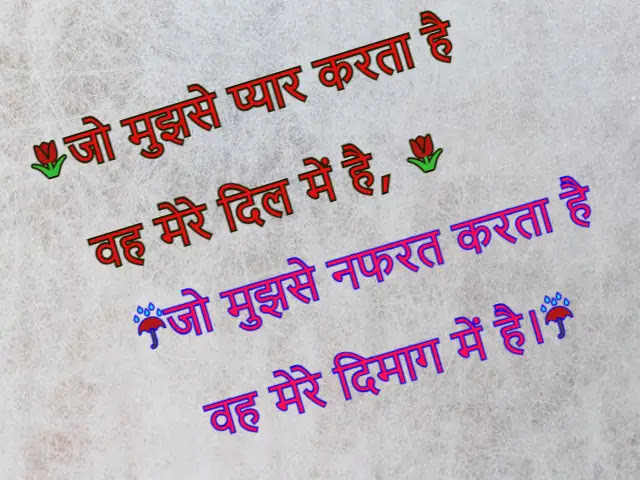 🌷जो मुझसे प्यार करता है
वह मेरे दिल में है, 🌷
☔जो मुझसे नफरत करता है
वह मेरे दिमाग में है।☔